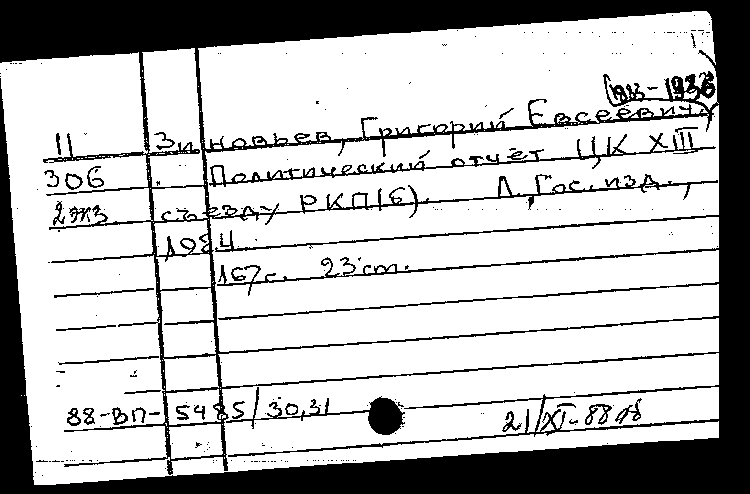 (1883-1936
11 Зиновьев, Григорий Евсеевич.
306 Политический отчёт ЦК XIII
2 экз съезду РКП(б). Л., Гос. изд.,
1924
167 с. 23 cm.
88-ВП-5485/30,31
21/XI-88